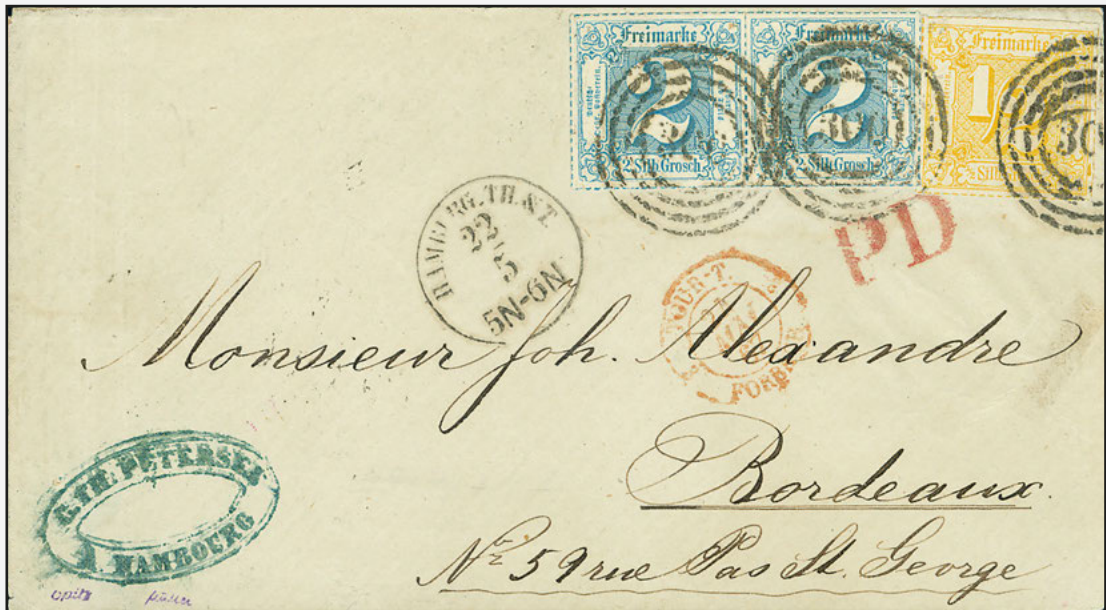 Freimarke
2
2 Silb. Grosch.
Freimarke
2
2 Silb. Grosch.
Freimarke
1/2
PD
HAMBURG. TH. & T.
22
5
5N-6N
TOUR-T.
MAI
Monsieur Joh. Alexandre
Bordeaux.
No 59 rue Pas St. George
C. TH. PETERSEN
A HAMBOURG
opitz